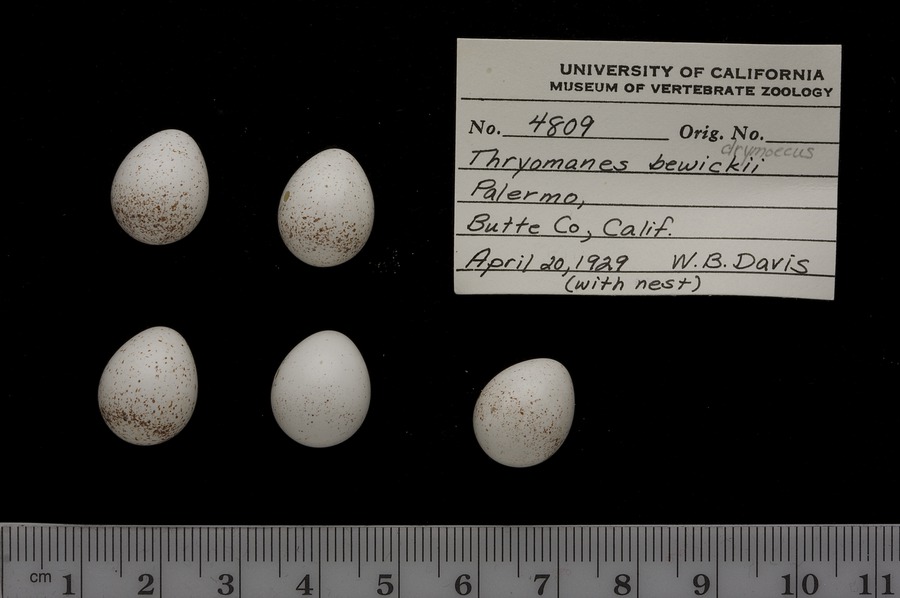 UNIVERSITY OF CALIFORNIA
MUSEUM OF VERTEBRATE ZOOLOGY
No. 4809 Orig. No.
drymoecus
Thryomanes bewickii
Palermo,
Butte Co, Calif.
April 20, 1929 W. B. Davis
(with nest)
cm 1 2 3 4 5 6 7 8 9 10 11